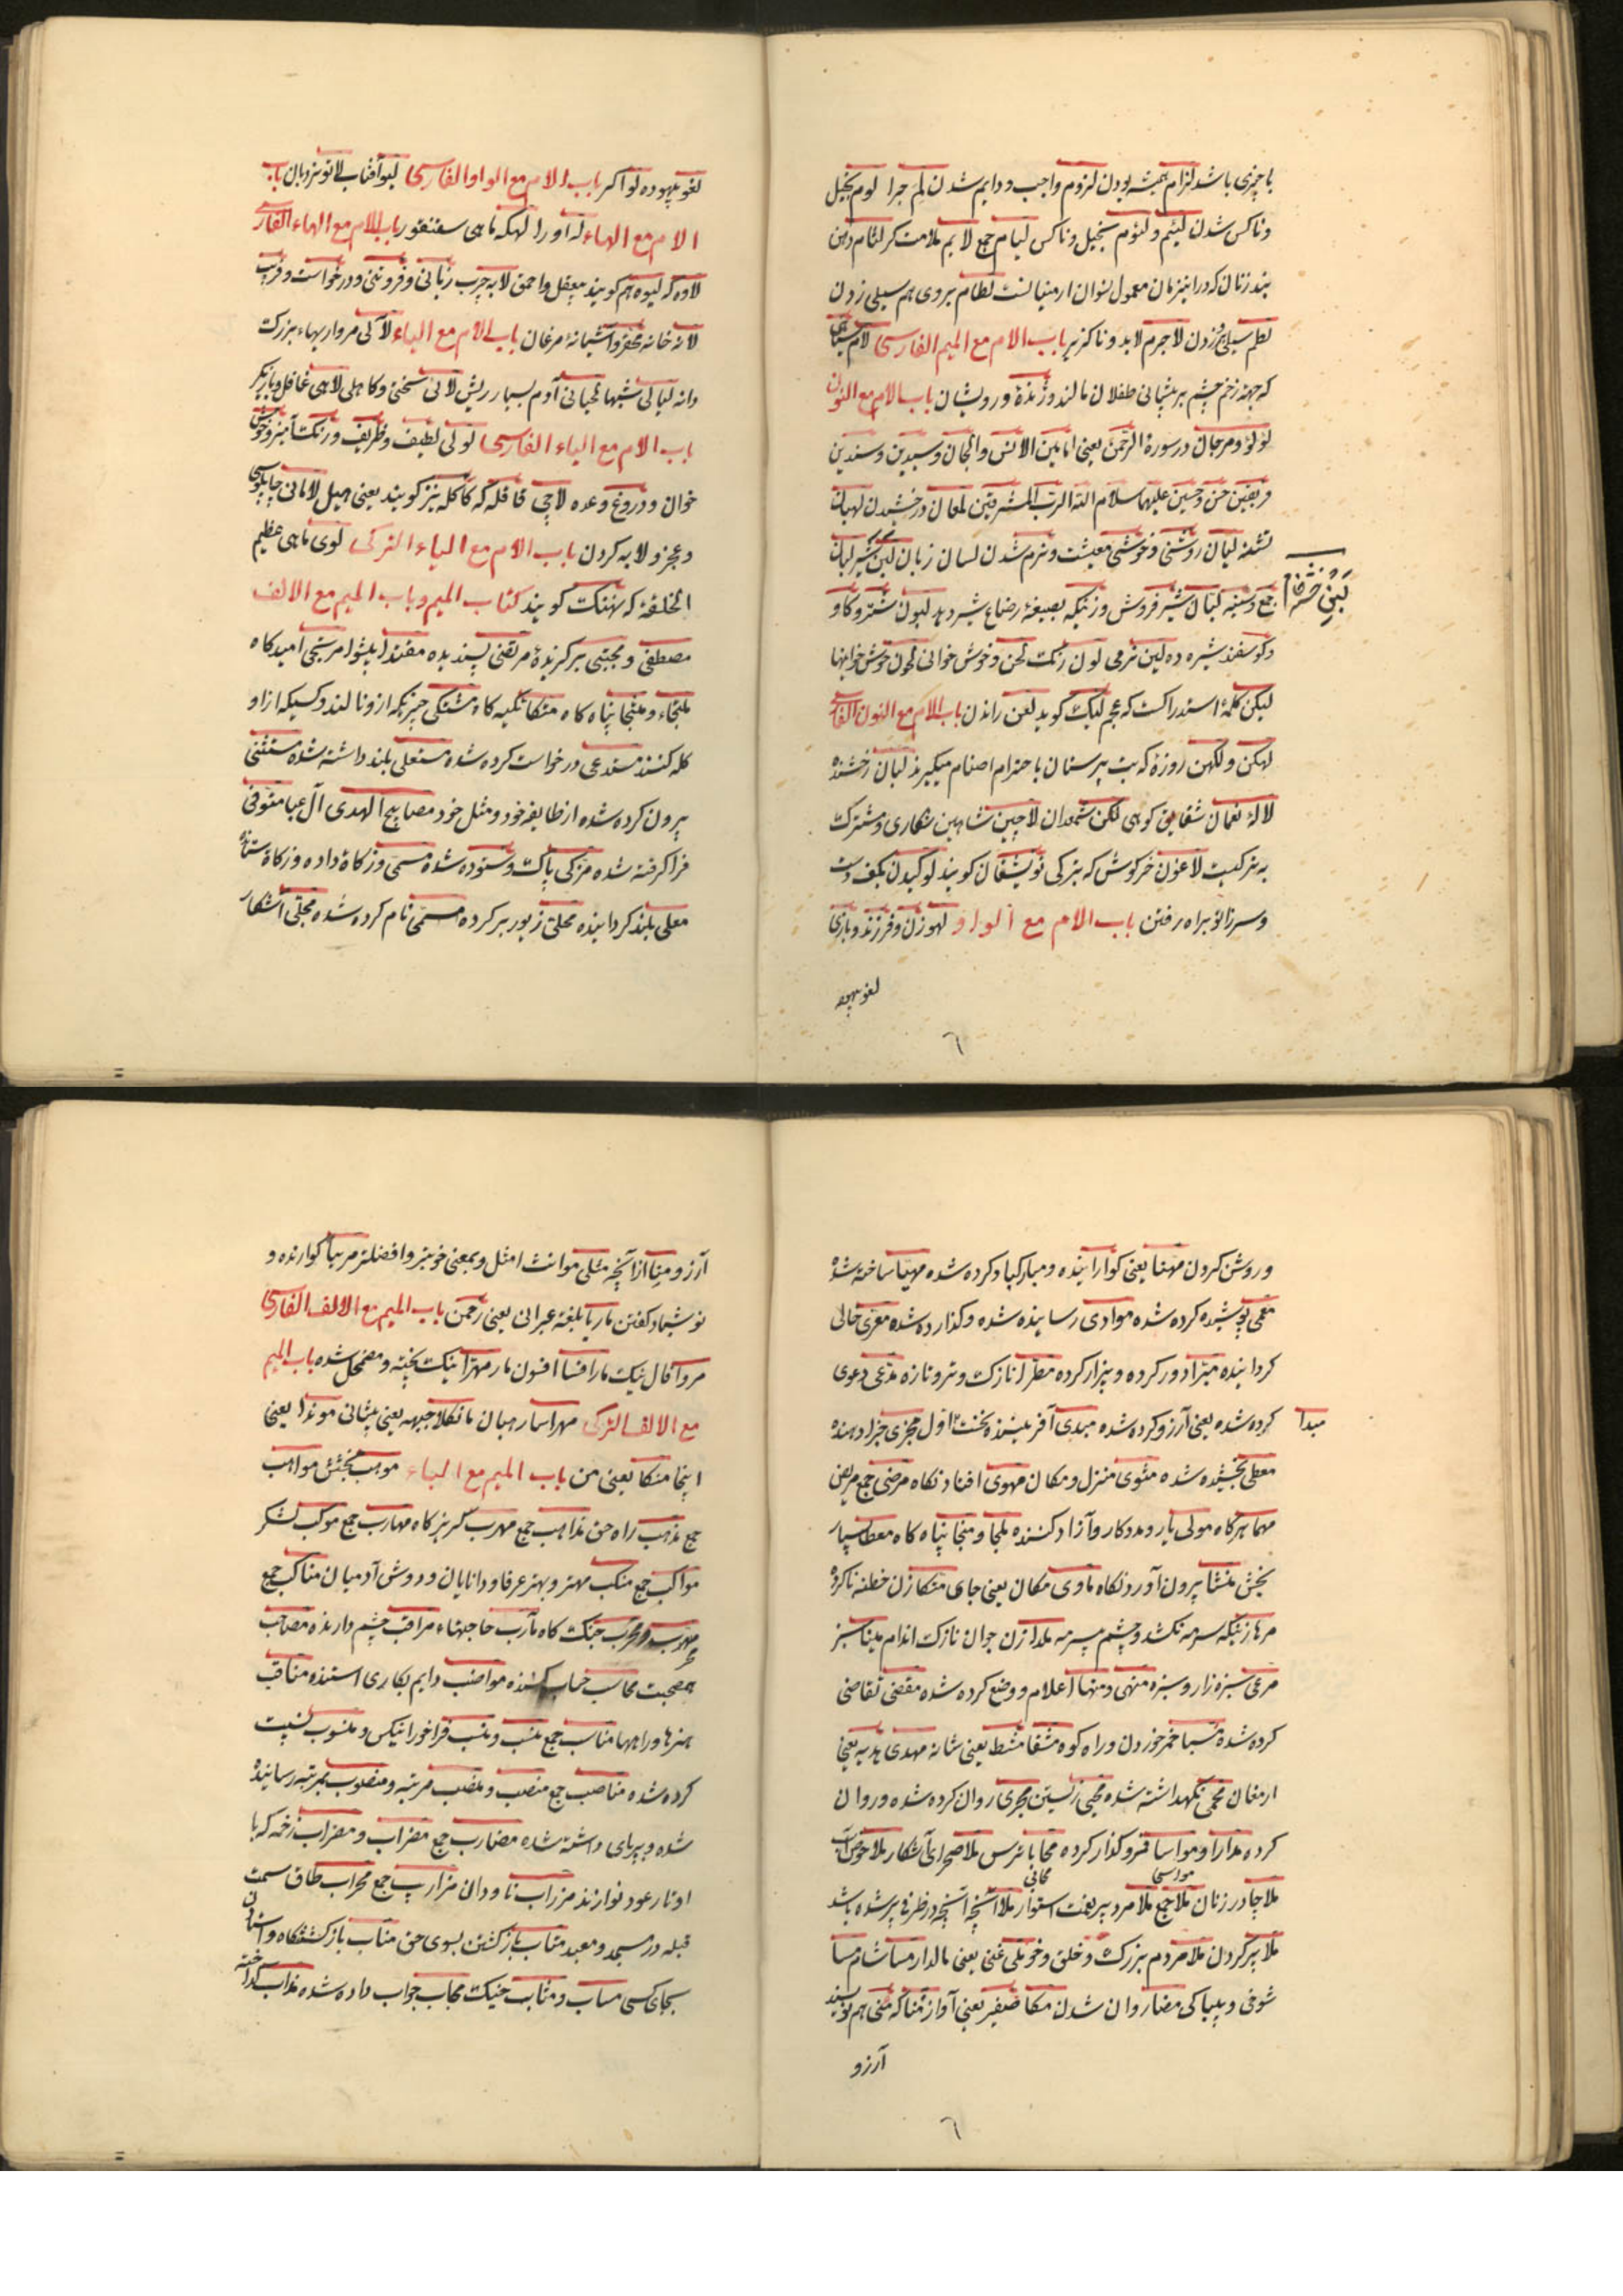 با چیزی باشد لزام همیشه بودن لزوم واجب و دایم شدن لم چرا لوم بخیل
و ناکس شدن لئیم و لئوم بخیل و ناکس لیام جمع لایم ملامت کر لثام دهن
بند زنان که در این زمان معمول نسوان ارمنیانست لطام بروی هم سیلی زدن
لطم سیلی زدن لاجرم لابد و ناکزیر باب الام مع المیم الفارسی لام سیاهی
که جهة زخم چشم بر پیشانی طفلان مالند و ژندهٔ درویشان باب الام مع النون
لؤلؤ و مرجان در سورة الرحمن یعنی امابین الانس والجان و سیدین و سندین
فریقین حسن و حسین علیهما سلام الله الرب المشرقین لمعان درخشیدن لهبان
تشنه لیان روشنی و خوشی معیشت و نرم شدن لسان زبان لبن شیر لبان
لبن خشت خام
جمع و سینه لبان شیر فروش و زنیکه بصیغهٔ رضاع شیر دهد لبون شتر و کاو
و کوسفند شیره ده لین نرمی لون رنکت لحن و خوش خوانی لحون خوش خوانیها
لیکن کلمهٔ استدراکست که عجم لیکت کوید لعن راندن باب الام مع النون الفارسی
لهکن و لکهن روزهٔ که بت پرستان باحترام اصنام میکیرند لبان رخشنده
لالهٔ نعمان شقایق کوهی لکن شمعدان لاچین شاهین شکاری و مشترکت
به ترکیت لاغون خرکوش که بترکی توشقان کویند لوکیدن بکف دست
و سر زانو براه رفتن باب الام مع الواو لهو زن و فرزند و بازی
لغو بیهوده
٦
لغو بیهوده لو اکر باب الام مع الواو الفارسی لیو آفتاب لاتو نردبان باب
الام مع الهاء له اورا لهکه ماهی سقنقور باب الام مع الهاء الفارسی
لاوه که لیوه هم کویند بیعقل و احمق لابه چرب زبانی و فروتنی و درخواست و فریب
لانه خانهٔ محقر و آشیانهٔ مرغان باب الام مع الیاء لآلی مرواریدهاء بزرکت
دانه لیالی شبها لحیانی آدم بسیار ریش لائی سختی و کاهلی لاهی غافل و بازیکر
باب الام مع الیاء الفارسی لولی لطیف و ظریف و رنکت آمیز و خوش
خوان و دروغ وعده لاچی قاقله که کاکله نیز کویند یعنی هیل لامانی چاپلوسی
و عجز و لابه کردن باب الام مع الیاء الترکی لوی ماهی عظیم
الخلقة که نهنکت کویند کتاب المیم و باب المیم مع الالف
مصطفی و مجتبی برکزیدهٔ مرتضی پسندیده مقتدا پیشوا مرتجی امیدکاه
ملتجاء و ملتجا پناه کاه متکا تکیه کاه مشتکی چیزیکه ازو نالند و کسیکه ازاو
کله کنند مستدعی درخواست کرده شده مستعلی بلند داشته شده مستثنی
بیرون کرده شده از طایفهٔ خود و مثل خود مصابیح الهدی آل عبا متوفی
فراکرفته شده مزکی پاکت و ستوده شده مسمی و زکاة داده و زکاة ستاننده
معلی بلند کردانیده محلی زیور بر کرده مسمی نام کرده شده مجلی آشکار
و روشن کردن مهنا یعنی کوارا بنده و مبارکباد کرده شده مهیا ساخته شده
معمی پوشیده کرده شده موادی رسانیده شده و کذارده شده معری خالی
کردانیده مبرا دور کرده و بیزار کرده مطرا نازکت و تر و تازه مدعی دعوی
مبدا
کرده شده یعنی آرزو کرده شده مبدی آفریننده نخست اول مجزی جزا دهنده
معطی بخشیده شده مثوی منزل و مکان مهوی افتادنکاه مرضی جمع مریض
مهما هرکاه مولی یار و مددکار و آزاد کننده ملجا و منجا پناه کاه معطا بسیار
بخش منشا بیرون آوردنکاه ماوی مکان یعنی جای متکا زن خطنه ناکرده
مرها زنیکه سرمه نکشد و چشم بسرمه ملدا زن جوان نازکت اندام مینا سبز
مرعی سبزه زار و سبزه منهی و منها اعلام و وضع کرده شده مقضی تقاضی
کرده شده مسبا خمر خوردن و راه کوه مشقا مشط یعنی شانه مهدی هدیه یعنی
ارمغان محمی نکهداشته شده محیی زیستن مجری روان کرده شده و روان
کرده مدارا و مواسا فرو کذار کرده محابا ترس ملا صحرای آشکار ملا حوض آب
مواسی محابی
ملا چادر زنان ملا جمع ملا مرد پیر بعنت استوار ملا آنچه آنچه در ظرفی پر شده باشد
ملا پر کردن ملا مردم بزرکت و خلق و خو ملی غنی یعنی مالدار مسا شام مسا
شوخی و بیباکی مضا روان شدن مکا صفیر یعنی آواز منا که منی هم نویسند
آرزو
٦
آرزو و منا از آنچه مثلی موانث امثل و بمعنی خوبتر و افضلتر مریا کوارنده و
نوشیاد کفتن ماریا بلغة عبرانی یعنی رحمن باب المیم مع الالف الفارسی
مروا فال نیک مارافسا افسون مار مهرا نیکت پخته و مضمحل شده باب المیم
مع الالف الترکی مهراسا رهبان مانکلا جبهه یعنی پیشانی موندا یعنی
اینجا منکا یعنی من باب المیم مع الباء موهب بخشش مواهب
جمع مذهب راه حق مذاهب جمع مهرب کریزکاه مهارب جمع موکب لشکر
مواکب جمع منکب مهتر و بهتر عرفا و دانایان و دوش آدمیان مناکب جمع
مهرب و محرب جنکت کاه مآرب حاجتهاء مراقب چشم دارنده مصاحب
همصحبت محاسب حساب کننده مواضب دایم بکاری استنده مناقب
هنرها و راهها مناسب جمع منسب و منسب فراخور انیکس و منسوب نسبت
کرده شده مناصب جمع منصب و منصب مرتبه و منصوب بمرتبه رسانیده
شده و برپای داشته شده مضارب جمع مضراب و مضراب زخمه که با
اوتار عود نوازند مزراب ناودان مزاریب جمع محراب طاق سمت
قبله در مسجد و معبد متاب بازکشتن بسوی حق مناب بازکشتنکاه و استادن
بجای کسی مساب و مثابت خیکت مجاب جواب داده شده مذاب کداخته